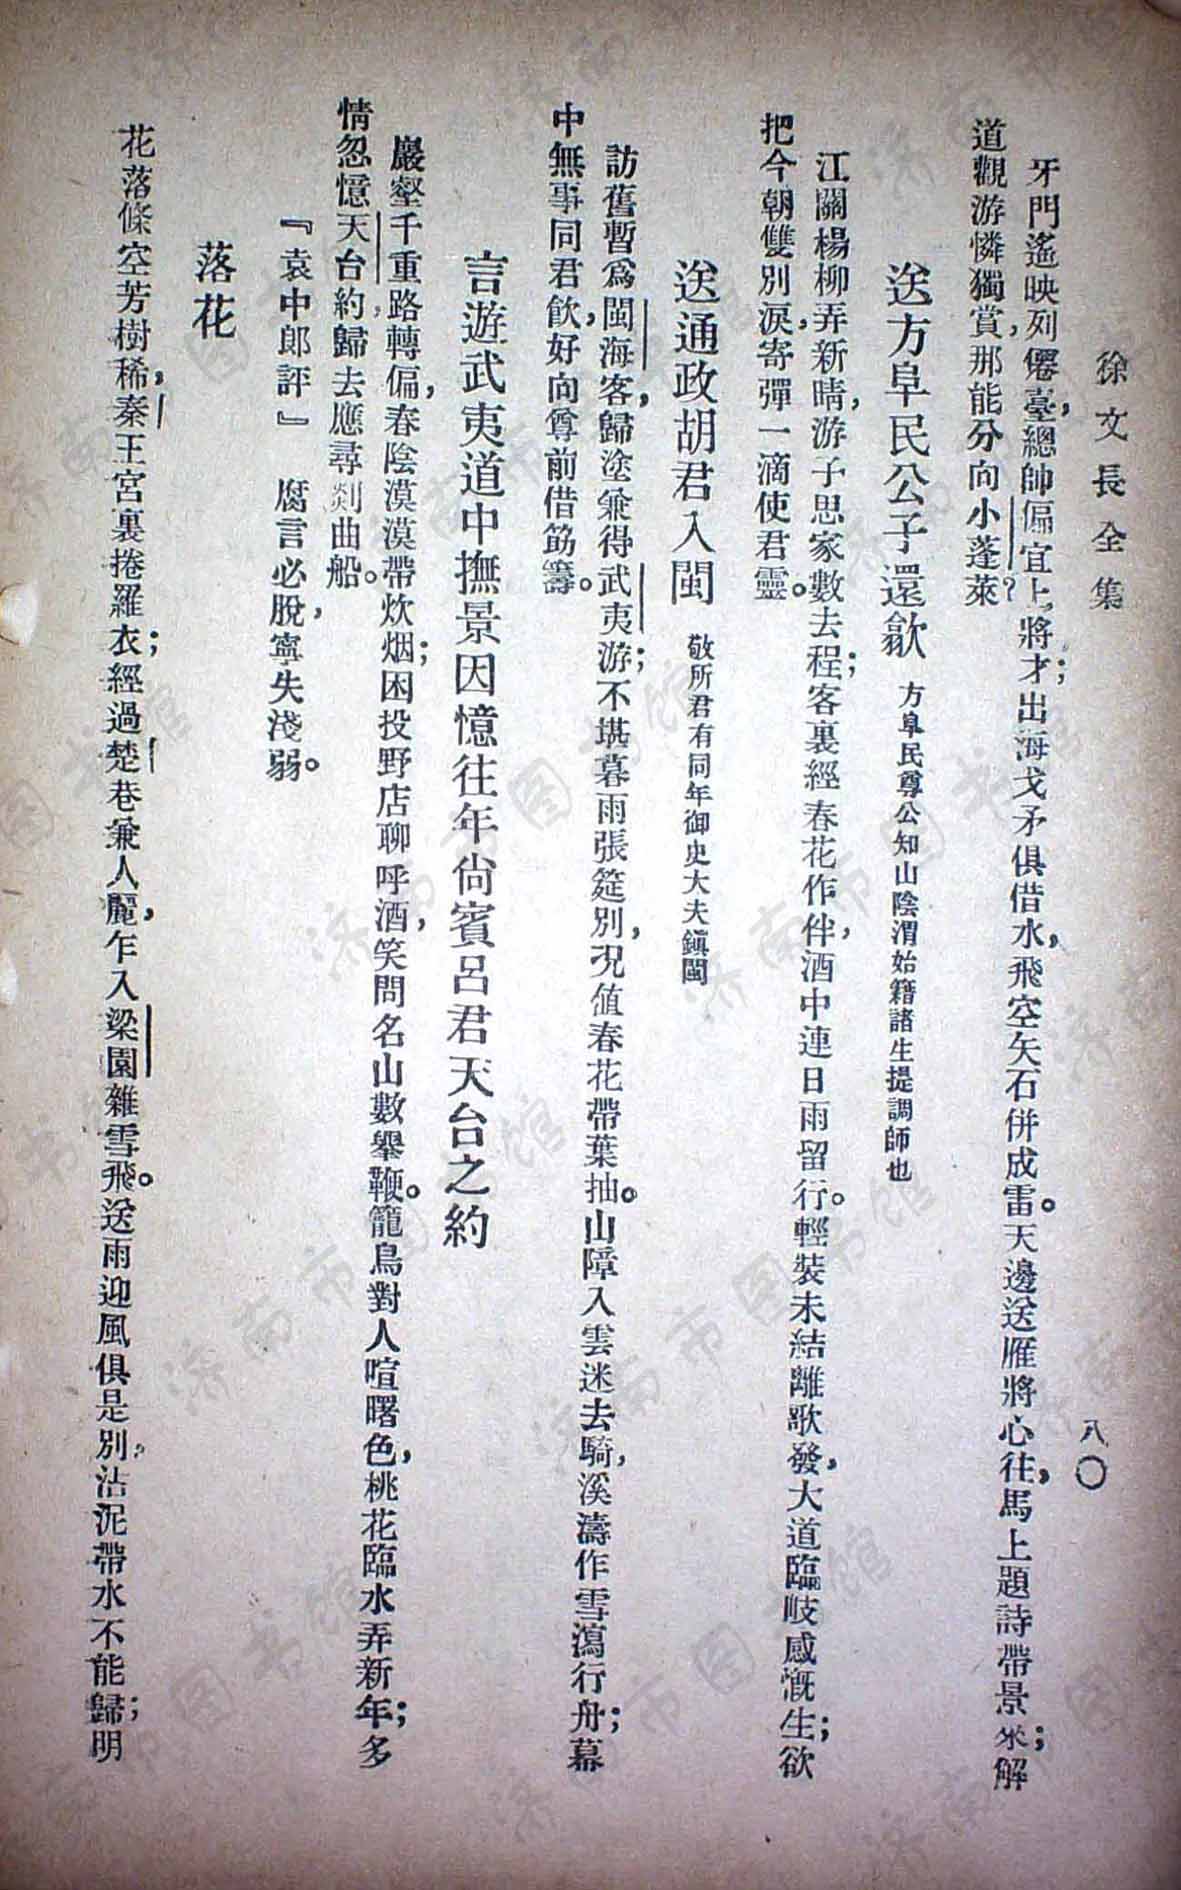 徐文長全集
八〇
牙門遙映列僊臺，總帥偏宜上將才；出海戈矛俱借水，飛空矢石併成雷。天邊送雁將心往，馬上題詩帶景來；解
道觀游憐獨賞，那能分向小蓬萊？
送方阜民公子還歙　方阜民尊公知山陰渭始籍諸生提調師也
江關楊柳弄新晴，游子思家數去程；客裏經春花作伴，酒中連日雨留行。輕裝未結離歌發，大道臨岐感慨生；欲
把今朝雙別淚，寄彈一滴使君靈。
送通政胡君入閩　敬所君有同年御史大夫鎮閩
訪舊暫爲閩海客，歸塗兼得武夷游；不堪暮雨張筵別，況值春花帶葉抽。山障入雲迷去騎，溪濤作雪瀉行舟；幕
中無事同君飲，好向尊前借筯籌。
言遊武夷道中撫景因憶往年尙賓呂君天台之約
巖壑千重路轉偏，春陰漠漠帶炊烟；困投野店聊呼酒，笑問名山數舉鞭。籠鳥對人喧曙色，桃花臨水弄新年；多
情忽憶天台約，歸去應尋剡曲船。
『袁中郎評』　腐言必脫，寧失淺弱。
落花
花落條空芳樹稀，秦王宮裏捲羅衣；經過楚巷兼人麗，乍入梁園雜雪飛。送雨迎風俱是別，沾泥帶水不能歸；明
济南市图书馆